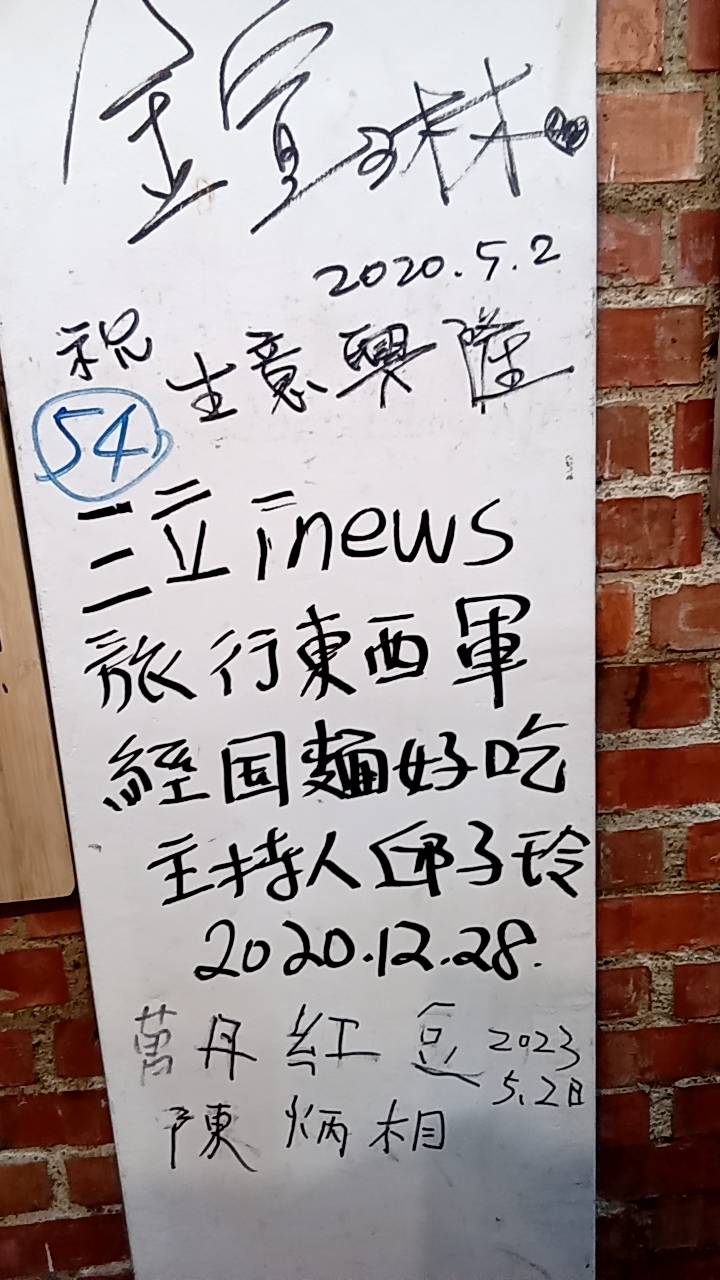 金宣の林
2020.5.2
祝
生意興隆
54
三立inews
旅行東西軍
經国麵好吃
主持人邱子玲
2020.12.28.
萬丹紅豆 2023
5.2日
陳炳相